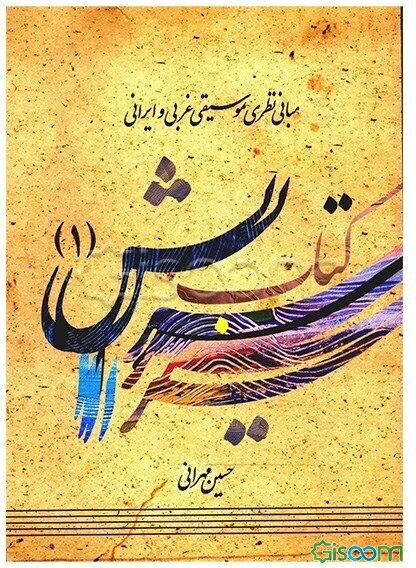 مبانی نظری موسیقی غربی و ایرانی
کتاب
(۱)
حسین مهرانی
Gisoom